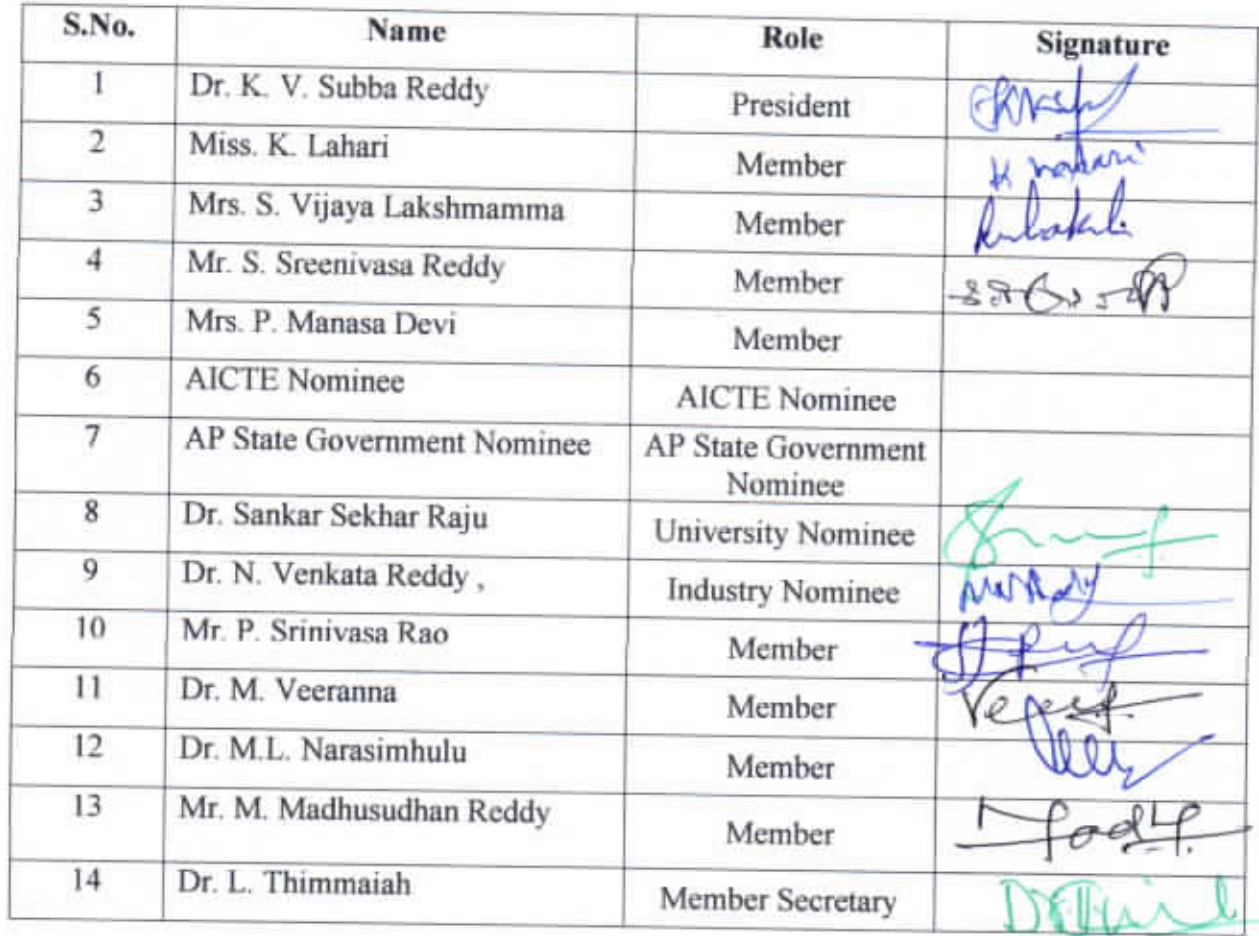 S.No. Name Role Signature
1 Dr. K. V. Subba Reddy President
2 Miss. K. Lahari Member K Lahari
3 Mrs. S. Vijaya Lakshmamma Member
4 Mr. S. Sreenivasa Reddy Member
5 Mrs. P. Manasa Devi Member
6 AICTE Nominee AICTE Nominee
7 AP State Government Nominee AP State Government
Nominee
8 Dr. Sankar Sekhar Raju University Nominee
9 Dr. N. Venkata Reddy , Industry Nominee
10 Mr. P. Srinivasa Rao Member
11 Dr. M. Veeranna Member
12 Dr. M.L. Narasimhulu Member
13 Mr. M. Madhusudhan Reddy Member
14 Dr. L. Thimmaiah Member Secretary